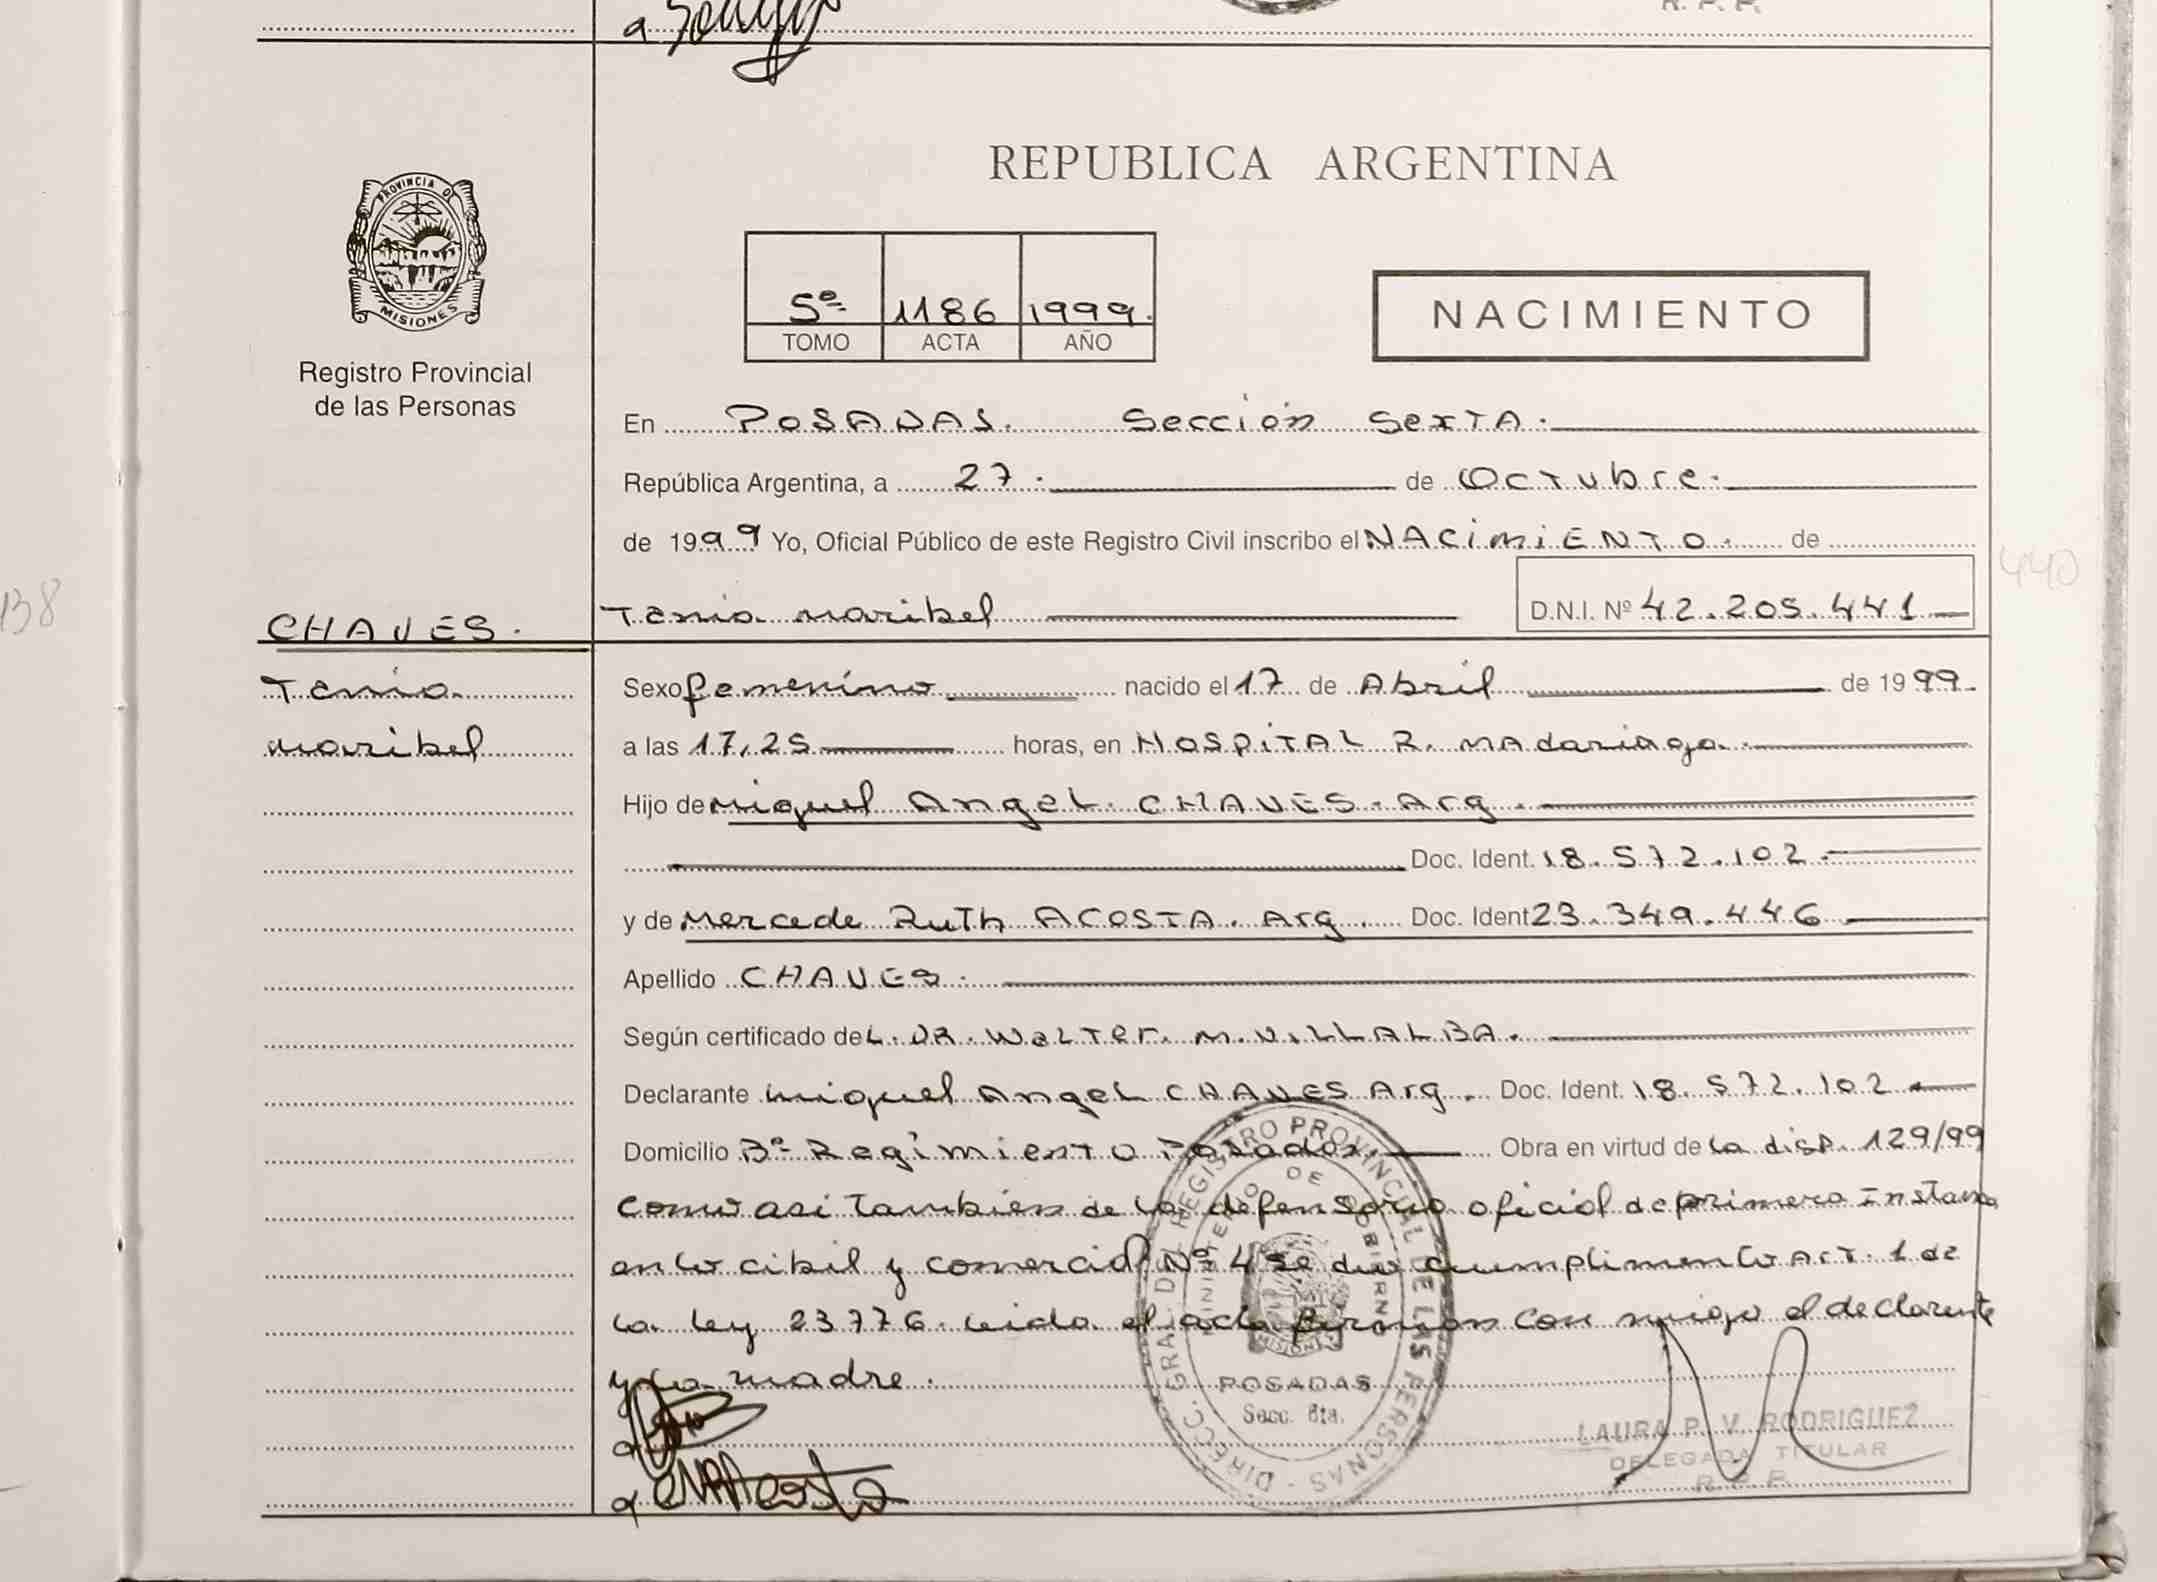 R. P. P.
PROVINCIA DE
MISIONES
Registro Provincial
de las Personas
REPUBLICA ARGENTINA
5º 1186 1999.
TOMO ACTA AÑO
NACIMIENTO
En POSADAS. Sección Sexta.
República Argentina, a 27. de Octubre.
de 1999 Yo, Oficial Público de este Registro Civil inscribo el NACIMIENTO. de
138
440
CHAVES.
Tania maribel D.N.I. Nº 42.205.441
Tania
maribel
Sexo femenino nacido el 17 de Abril de 1999.
a las 17,25 horas, en HOSPITAL R. MAdariaga.
Hijo de miguel Angel CHAVES. Arg.
Doc. Ident. 18.572.102.
y de Mercede Ruth ACOSTA. Arg. Doc. Ident 23.349.446
Apellido CHAVES.
Según certificado del. DR. Walter. M. VILLALBA.
Declarante miguel Angel CHAVES Arg. Doc. Ident. 18.572.102
Domicilio Bº Regimiento Posadas. Obra en virtud de la disp. 129/99
como asi tambien de la defensoria oficial de primera Instancia
en lo cibil y comercial Nº 4 se dio cumplimento Art. 1 de
la ley 23776. leida el acta firman con migo el declarante
y la madre.
DIRECC. GRAL. DEL REGISTRO PROVINCIAL DE LAS PERSONAS
MINISTERIO DE GOBIERNO
MISIONES
POSADAS
Secc. 6ta.
LAURA P. V. RODRIGUEZ
DELEGADA TITULAR
R. P. P.